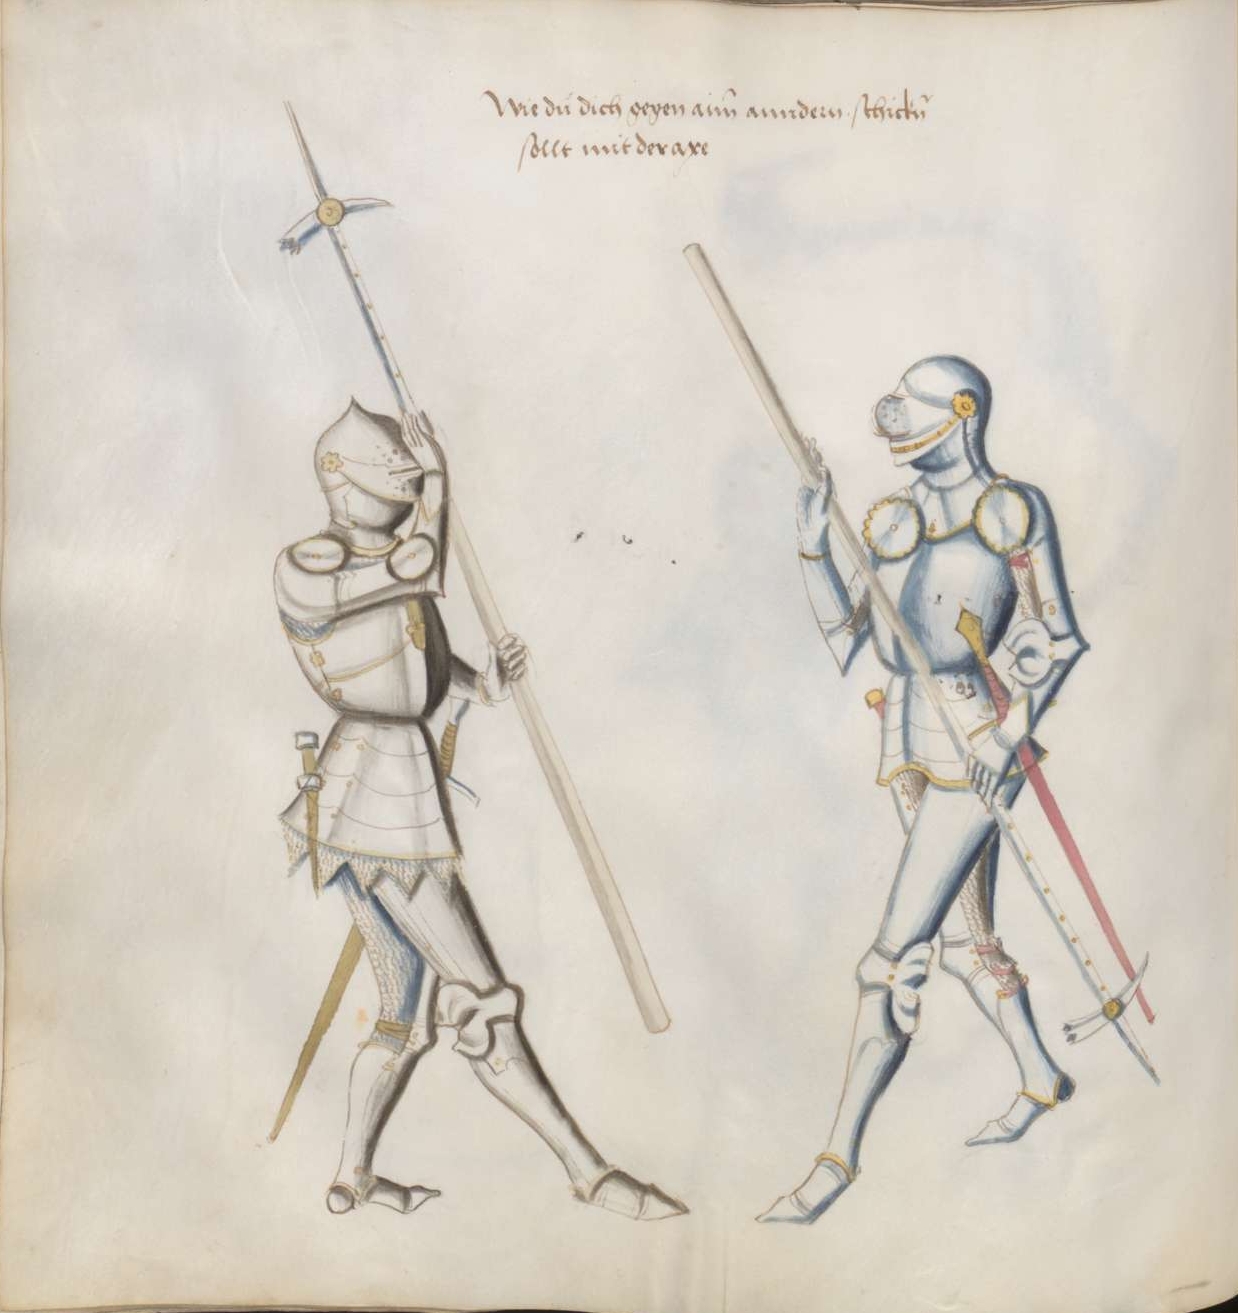 Wie du dich gegen ainn anndern schickn̄
sollt mit der axe